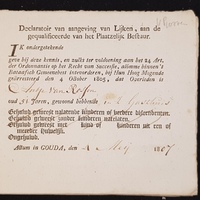 Declaratoir van aangeving van Lijken, aan de
gequalificeerde van het Plaatzelijk Bestuur.
IK ondergetekende
geve bij deze kennis, en zulks ter voldoening aan het 24 Art.
der Ordonnantie op het Recht van Successie, alomme binnen 't
Bataafsch Gemeenebest intevorderen, bij Hun Hoog Mogende
gearresteerd den 4 October 1805, dat Overleden is
oud 51 Jaren, gewoond hebbende
Gehuwd geweest nalatende kinderen of verdere descendenten.
Gehuwd geweest zonder kinderen
Gehuwd geweest met kinderen uit een of
meerder Huwelijk.
Ongehuwd.
Actum in GOUDA, den 1807